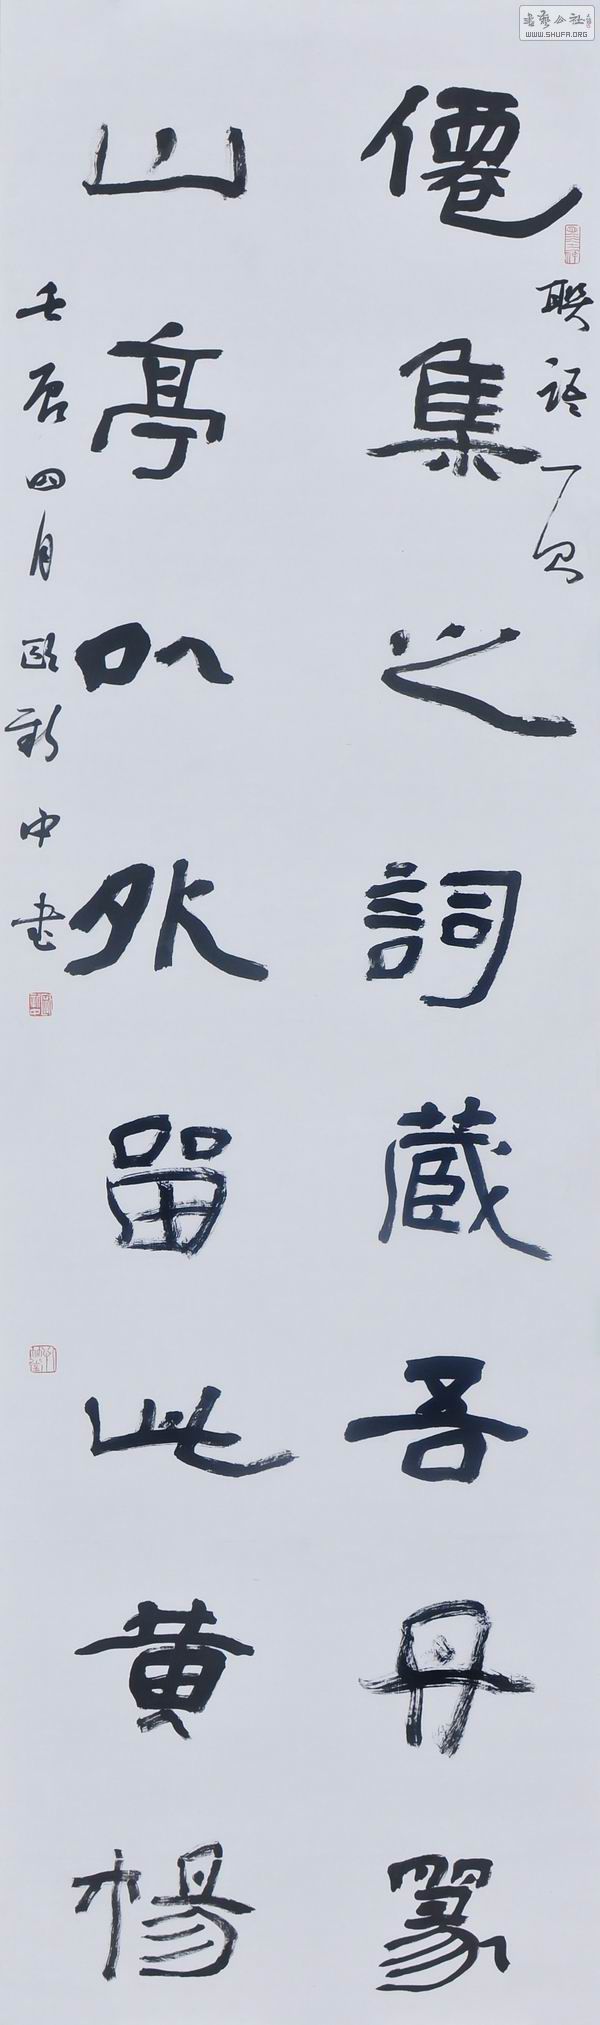 僊集之詞蔵吾丹篆
山亭以外留此黄楊
聯語一則
壬辰四月 歐新中書
書藝公社
WWW.SHUFA.ORG